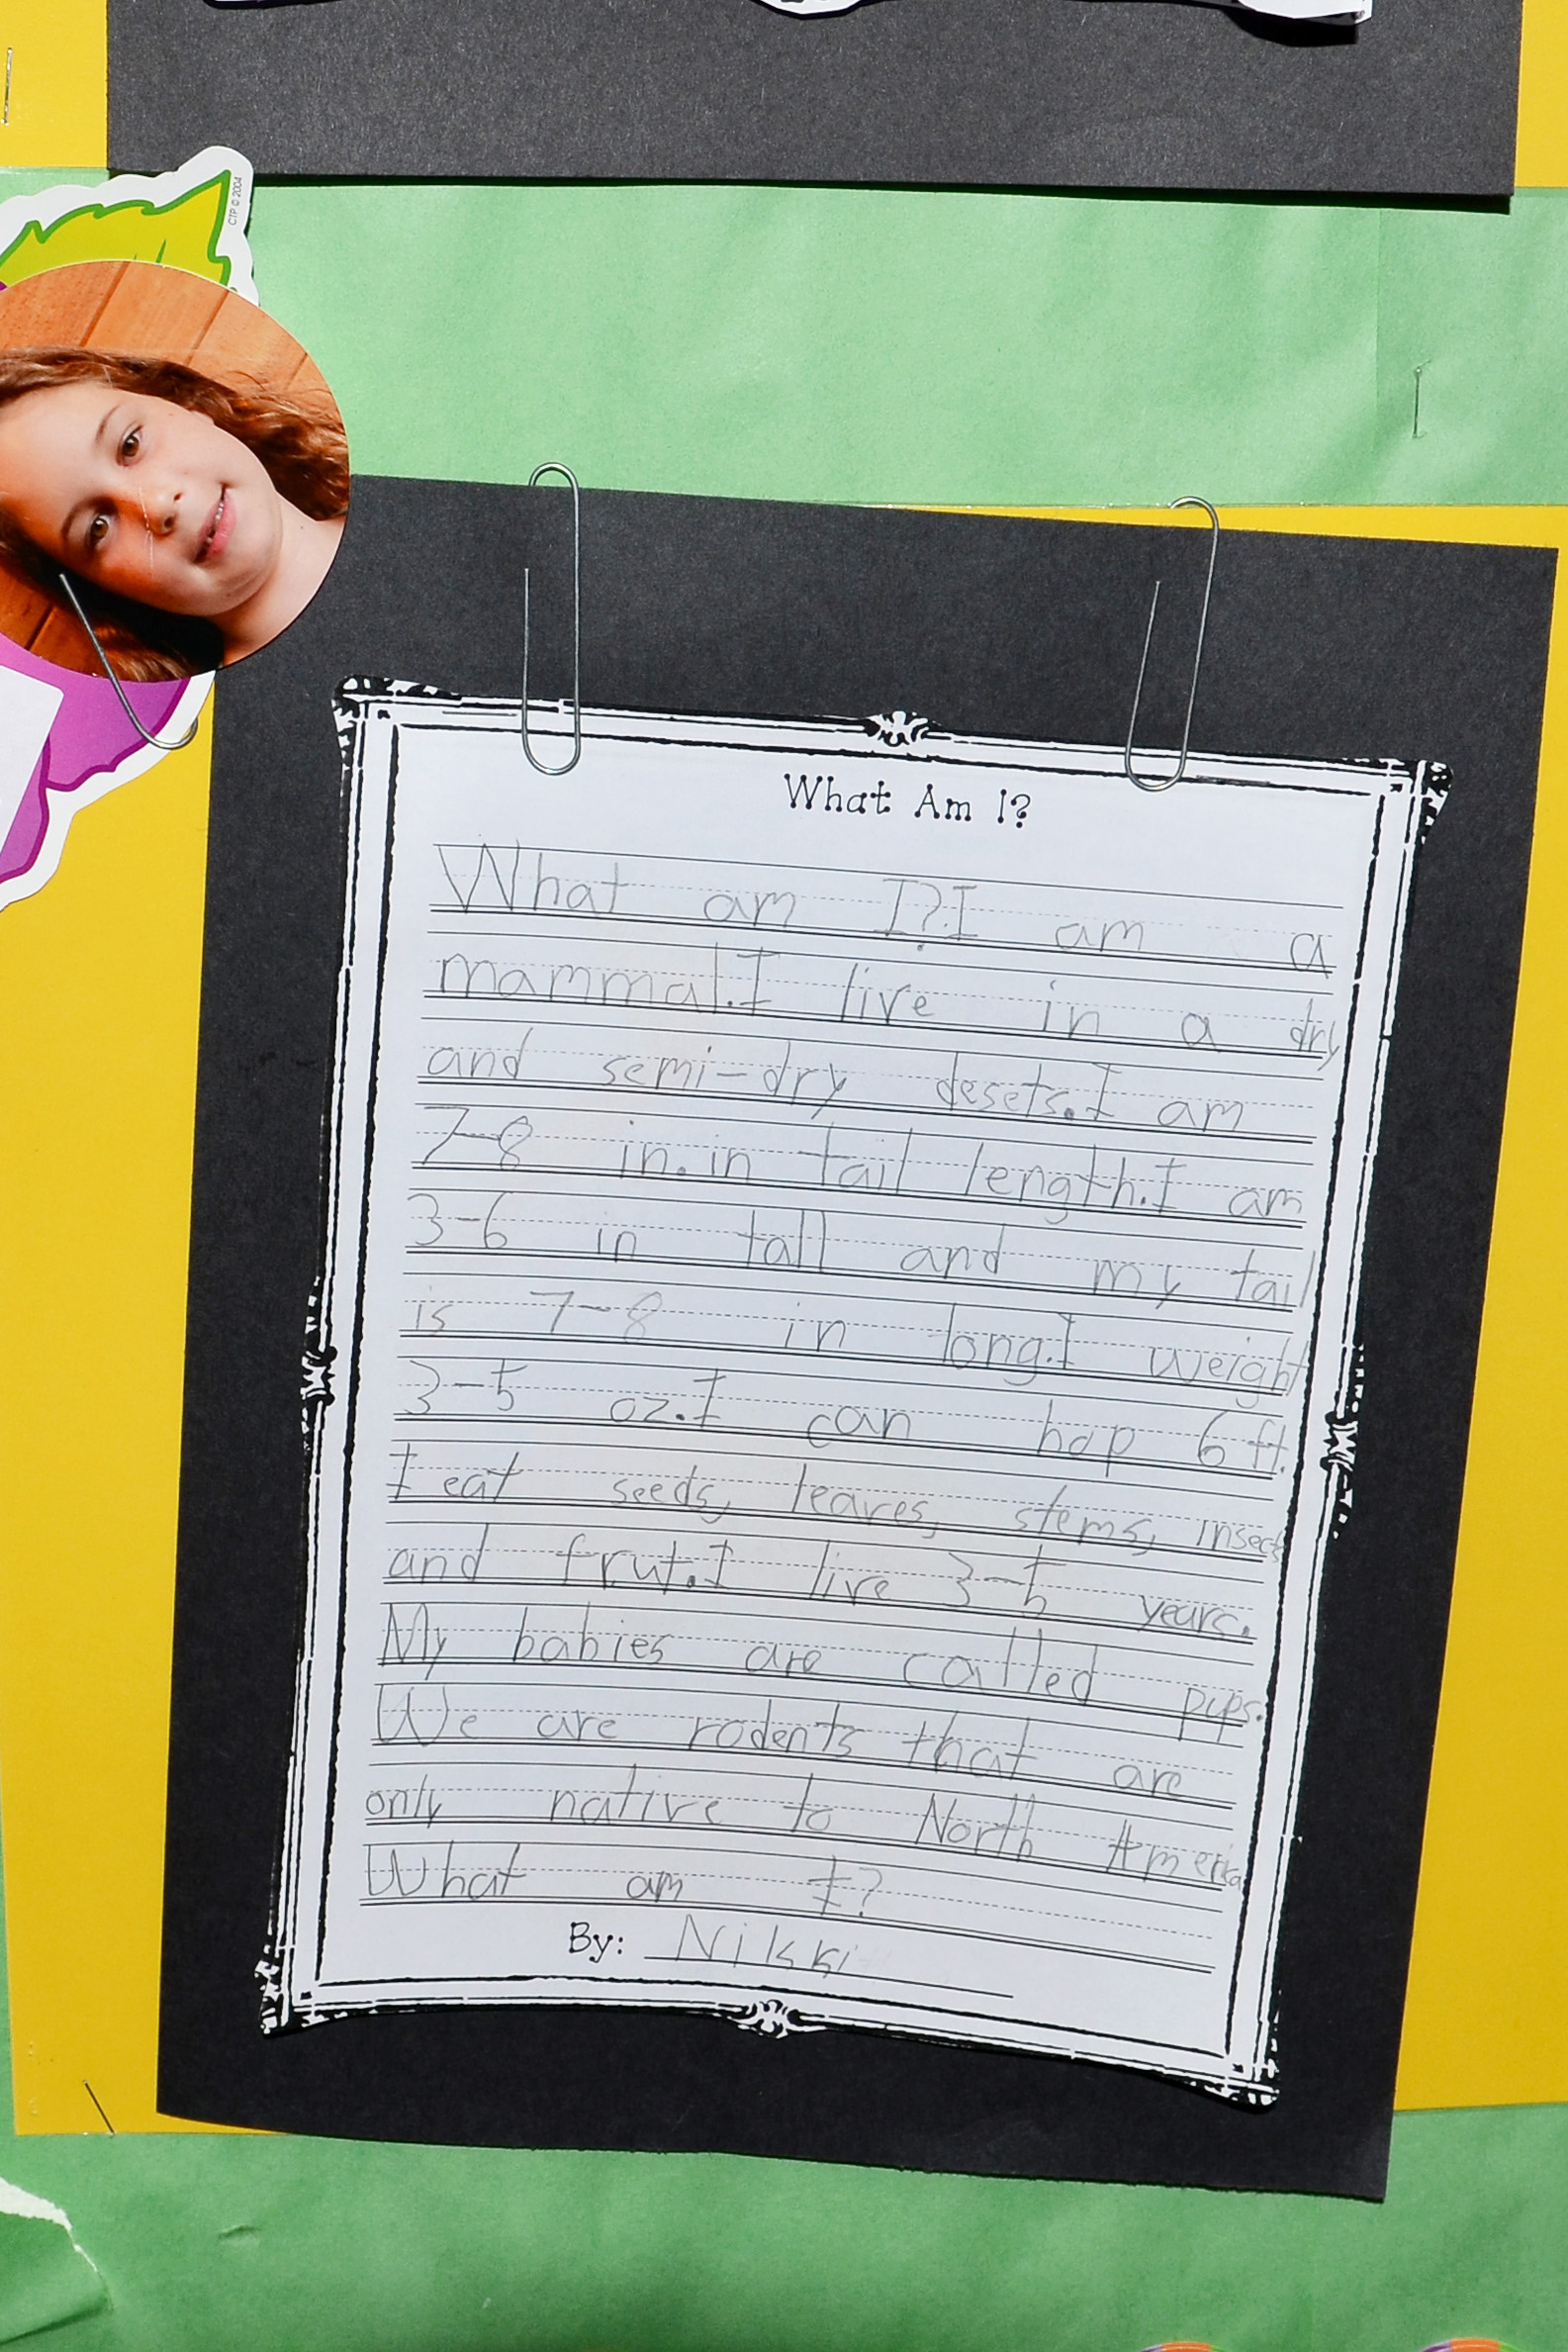 CTP © 2004
What Am I?
What am I? I am a
mammal. I live in a dry
and semi-dry desets. I am
7-8 in. in tail length. I am
3-6 in tall and my tail
is 7-8 in long. I weight
3-5 oz. I can hop 6 ft.
I eat seeds, leaves, stems, insects
and frut. I live 3-5 years.
My babies are called pups.
We are rodents that are
only native to North America
What am I?
By: Nikki